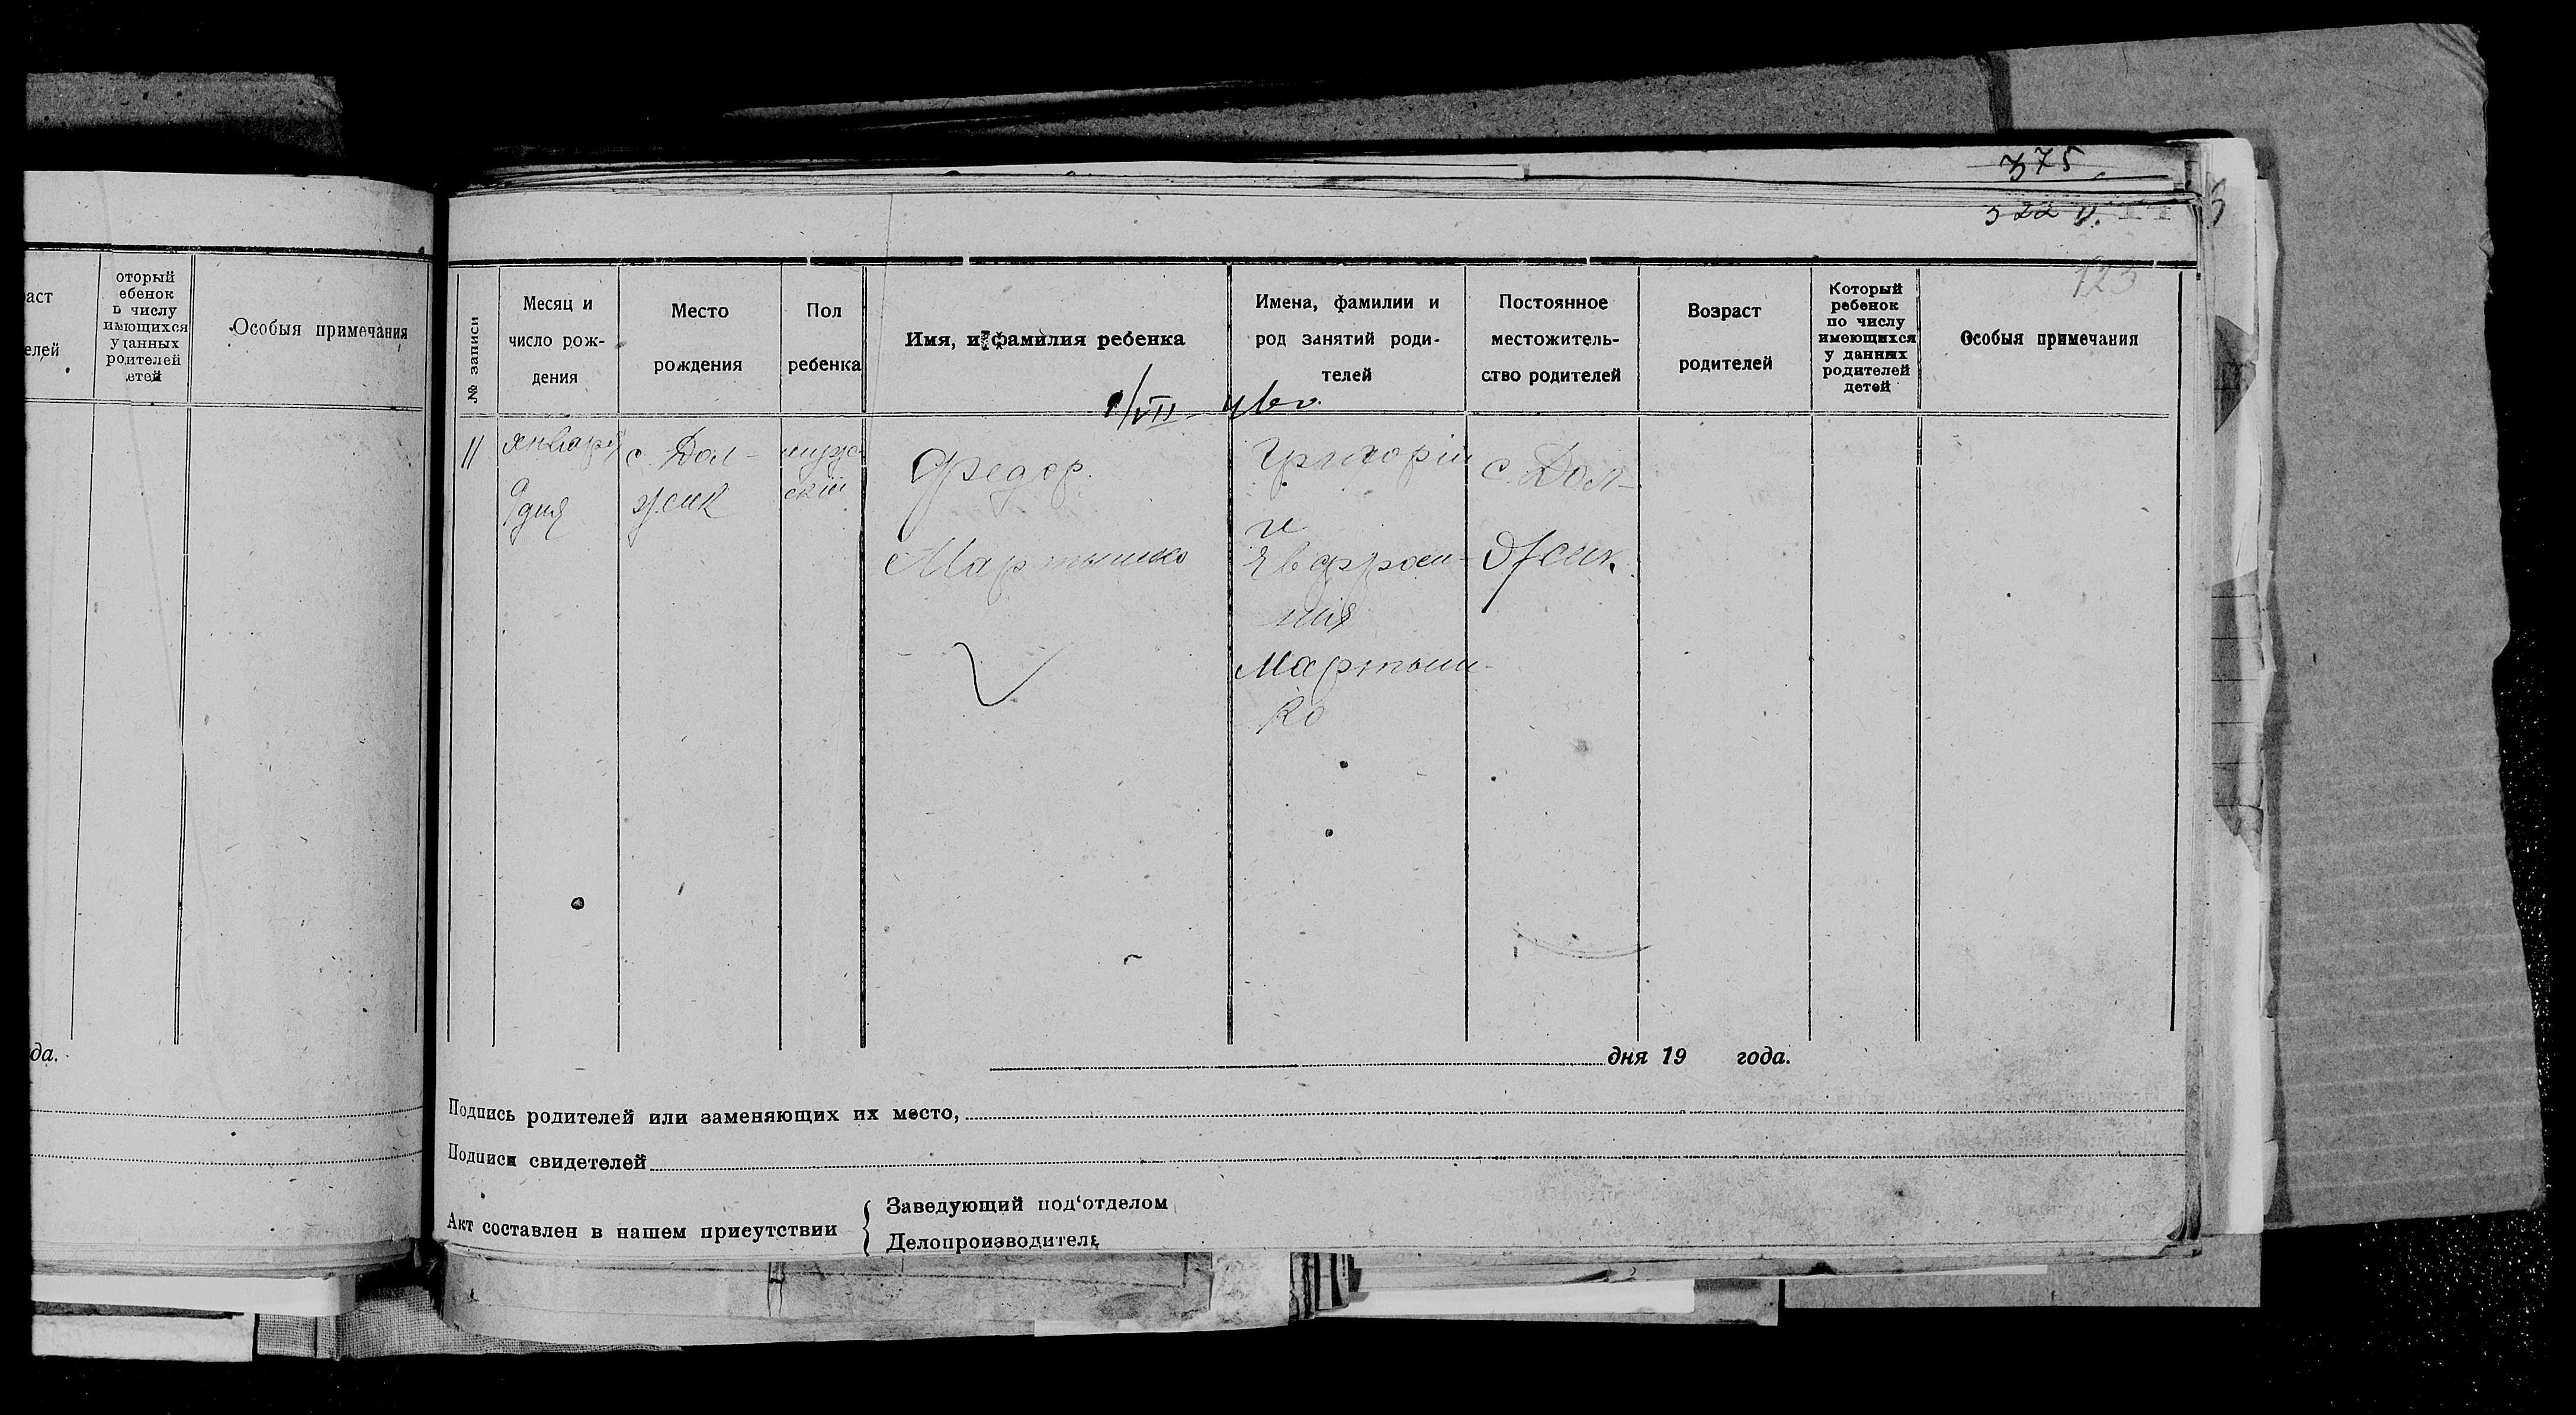 375
322 v.
123
аст
елей
оторый
ебенок
числу
имеющихся
у данных
родителей
детей
Особыя примечания
да.
№ записи
Месяц и
число рож-
дения
Место
рождения
Пол
ребенка
Имя, и фамилия ребенка
Имена, фамилии и
род занятий роди-
телей
Постоянное
местожитель-
ство родителей
Возраст
родителей
Который
ребенок
по числу
имеющихся
у данных
родителей
детей
Особыя примечания
11
января
9 дня
с. Дол-
жик
мужс
скій
Федор
Мартышко
Григорій
и
Евфроси-
нія
Мартыш-
ко
с. Дол-
жик
дня 19 года.
Подпись родителей или заменяющих их место,
Подписи свидетелей
Акт составлен в нашем присутствии
Заведующий под'отделом
Делопроизводитель